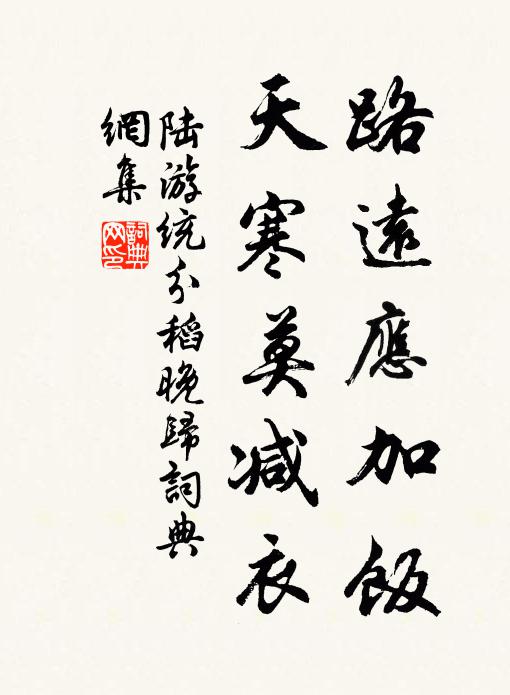 路遠應加飯
天寒莫減衣
陆游統分稻晚歸詞典
網集
詞典
网印